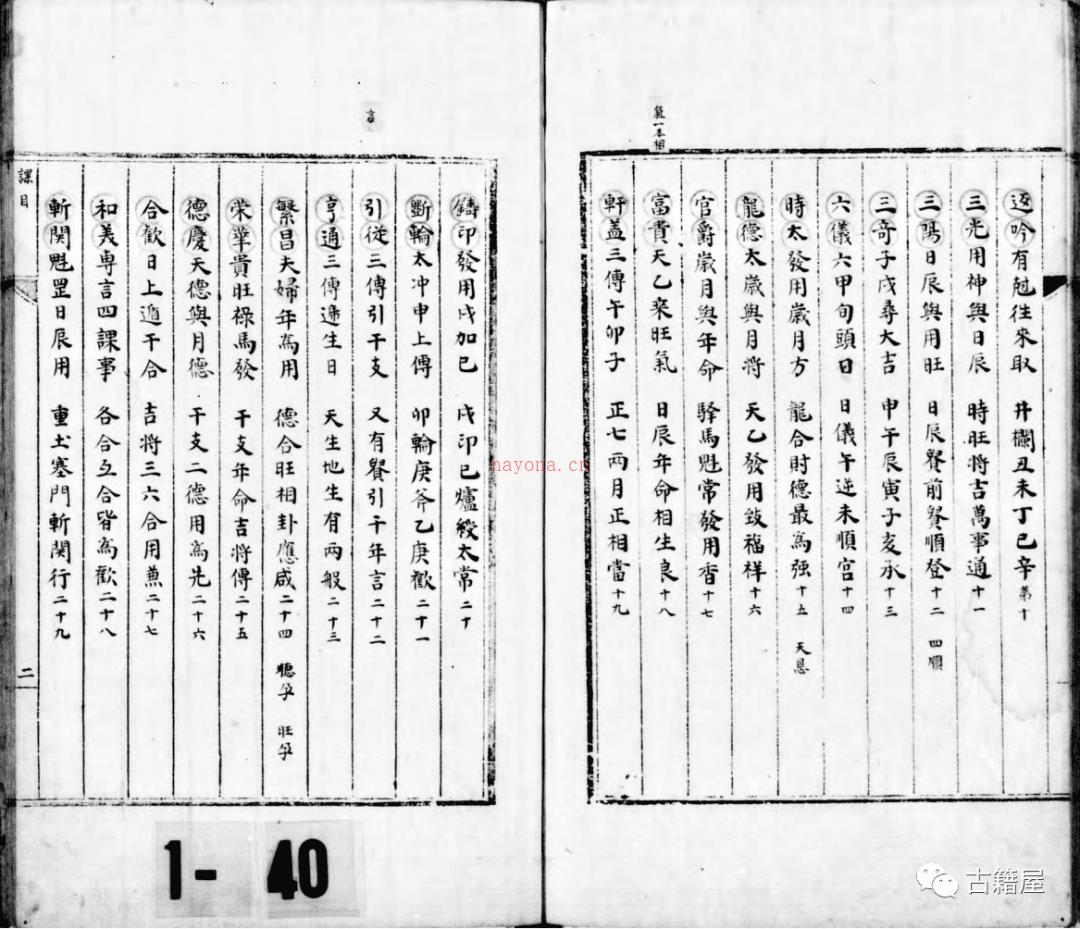 返吟有尅往來取 井欄丑未丁已辛 第十
三光用神與日辰 時旺將吉萬事通 十一
三陽日辰與用旺 日辰贒前贒順登 十二 四順
三奇子戌尋大吉 申午辰寅子亥承 十三
六儀六甲旬頭日 日儀午逆未順宮 十四
時太發用歲月方 龍合財德最為强 十五 天恩
龍德太歲與月將 天乙發用致福祥 十六
官爵歲月與年命 驛馬魁常發用香 十七
富貴天乙乘旺氣 日辰年命相生良 十八
軒盖三傳午卯子 正七兩月正相當 十九
一本相
鑄印發用戌加巳 戌印巳爐綬太常 二十
斵輪太冲申上傳 卯輪庚斧乙庚歡 二十一
引從三傳引干支 又有贒引干年言 二十二
亨通三傳遞生日 天生地生有兩般 二十三
繁昌夫婦年為用 德合旺相卦應咸 二十四 德孕 旺孕
荣華貴旺祿馬發 干支年命吉將傳 二十五
德慶天德與月德 干支二德用為先 二十六
合歡日上遁干合 吉將三六合用兼 二十七
和美専言四課事 各合互合皆為歡 二十八
斬関魁罡日辰用 重土塞門斬関行 二十九
課目
二
1- 40
nayona.cn
古籍屋